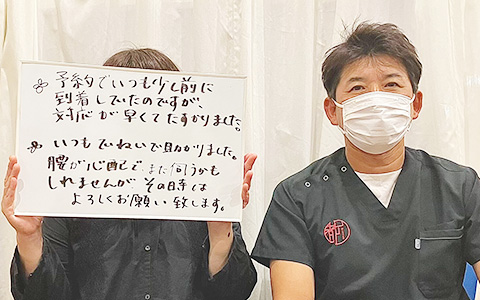 予約でいつも少し前に
到着していたのですが、
対応が早くてたすかりました。
いつもていねいで助かりました。
腰が心配で、また伺うかも
しれませんが その時は
よろしくお願い致します。